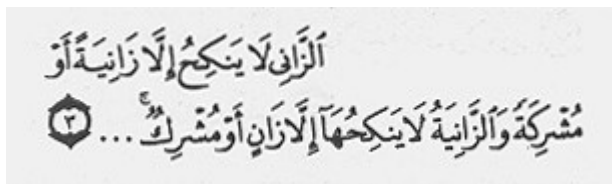 ٱلزَّانِى لَا يَنكِحُ إِلَّا زَانِيَةً أَوْ
مُشْرِكَةً وَٱلزَّانِيَةُ لَا يَنكِحُهَآ إِلَّا زَانٍ أَوْ مُشْرِكٌ ۚ ... ٣